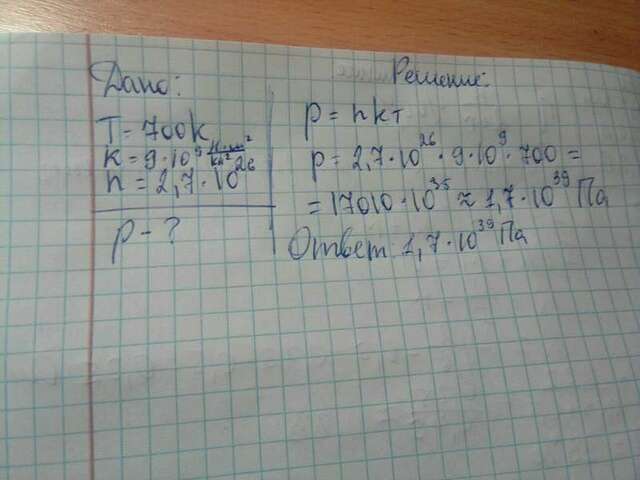 Дано:
T = 700K
K = 9·10⁹ Н·м²/Кл²
n = 2,7·10²⁶
p - ?
Решение:
p = nкт
p = 2,7·10²⁶·9·10⁹·700 =
= 17010·10³⁵ ≈ 1,7·10³⁹ Па
Ответ: 1,7·10³⁹ Па